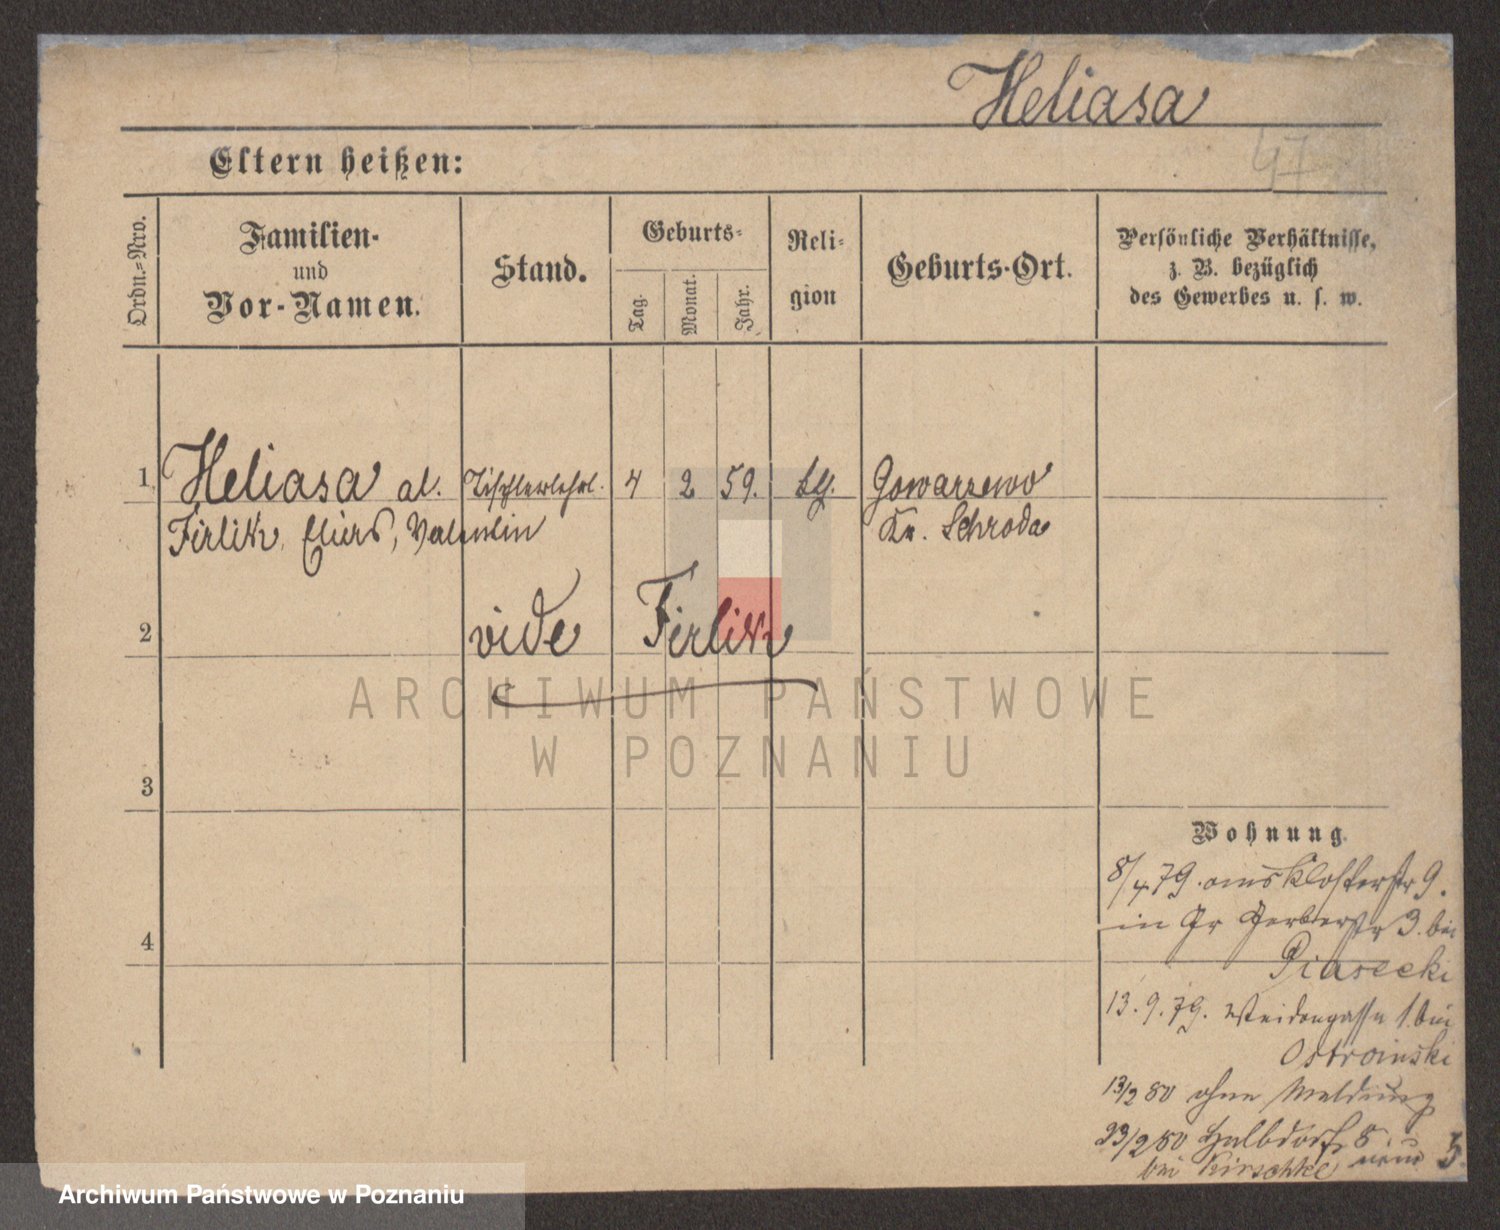 Heliasa
47
Eltern heißen:
Ordn.-Nro.
Familien-
und
Vor-Namen.
Stand.
Geburts-
Tag.
Monat.
Jahr.
Reli-
gion
Geburts-Ort.
Persönliche Verhältnisse,
z. B. bezüglich
des Gewerbes u. s. w.
1 Heliasa al. Tischlerlehrl. 4 2 59. Gowarzewo
Firlik, Valentin Kr. Schroda
2 vide Firlik
ARCHIWUM PAŃSTWOWE
W POZNANIU
3
Wohnung.
8/4 79. aus Klosterstr 9.
in Gr Gerberstr 3. bei
4
Piasecki
13. 9. 79. Weidengasse 1. bei
Ostroinski
13/2 80 ohne Meldung
23/2 80 Halbdorf 5
bei Kirschke
Archiwum Państwowe w Poznaniu